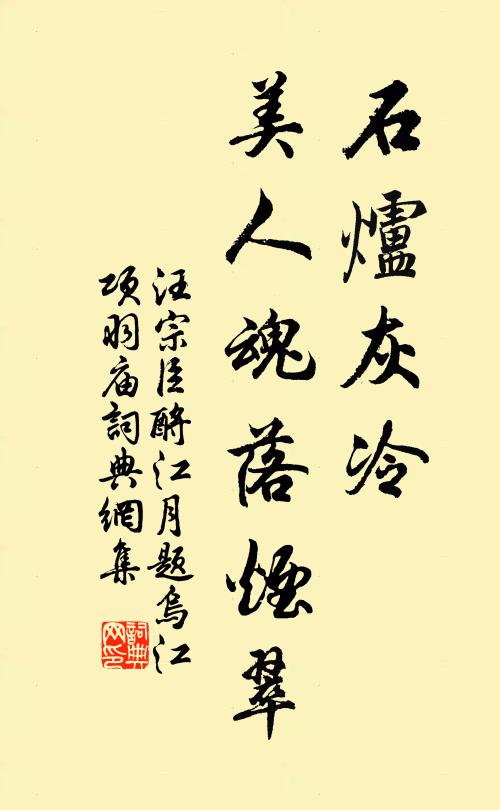 石爐灰冷
美人魂落煙翠
汪宗臣酹江月題烏江
項羽庙詞典網集
詞典
网印